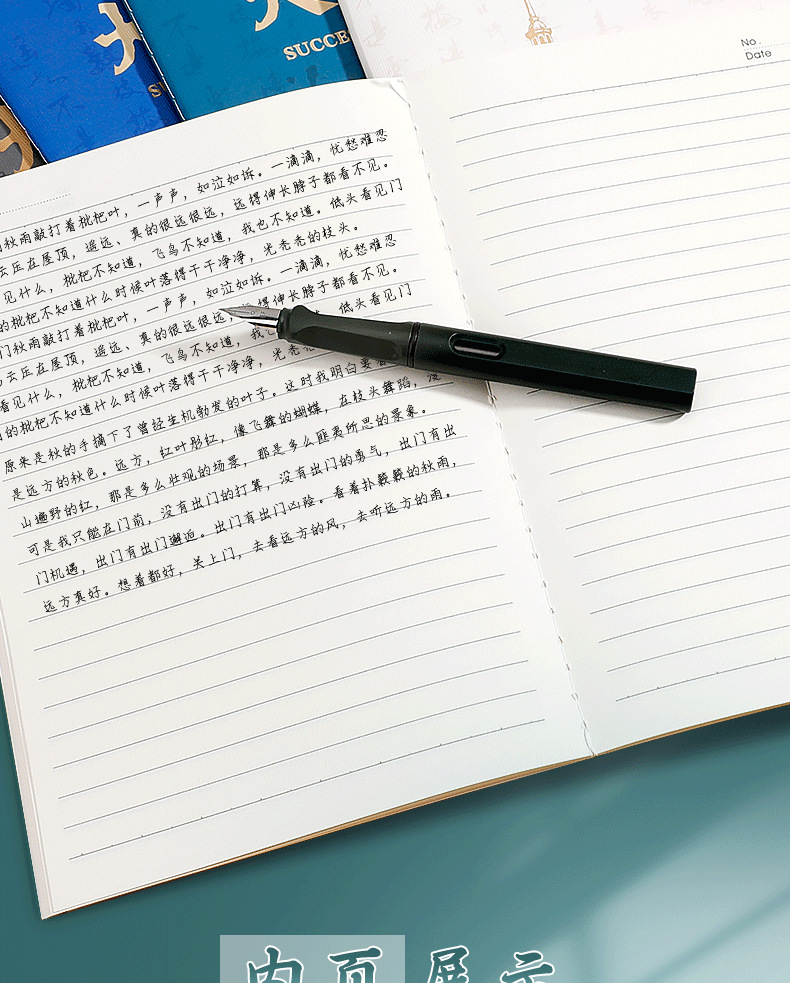 SUCCE
No.
Date
秋雨敲打着枇杷叶，一声声，如泣如诉。一滴滴，忧愁难忍
云压在屋顶，遥远、真的很远很远，远得伸长脖子都看不见。
见什么，枇杷不知道，飞鸟不知道，我也不知道。低头看见门
的枇杷不知道什么时候叶落得干干净净，光秃秃的枝头。
门秋雨敲打着枇杷叶，一声声，如泣如诉。一滴滴，忧愁难忍
云压在屋顶，遥远、真的很远很远，得伸长脖子都看不见。
看见什么，枇杷不知道，飞鸟不知道，我也 低头看见门
的枇杷不知道什么时候叶落得干干净净，光秃
原来是秋的手摘下了曾经生机勃发的叶子。这时我明白要
是远方的秋色。远方，红叶彤红，像飞舞的蝴蝶，在枝头舞蹈，漫
山遍野的红，那是多么壮观的场景，那是多么匪夷所思的景象。
可是我只能在门前，没有出门的打算，没有出门的勇气，出门有出
门机遇，出门有出门邂逅。出门有出门凶险。看着扑簌簌的秋雨，
远方真好。想着都好，关上门，去看远方的风，去听远方的雨。
内页展示